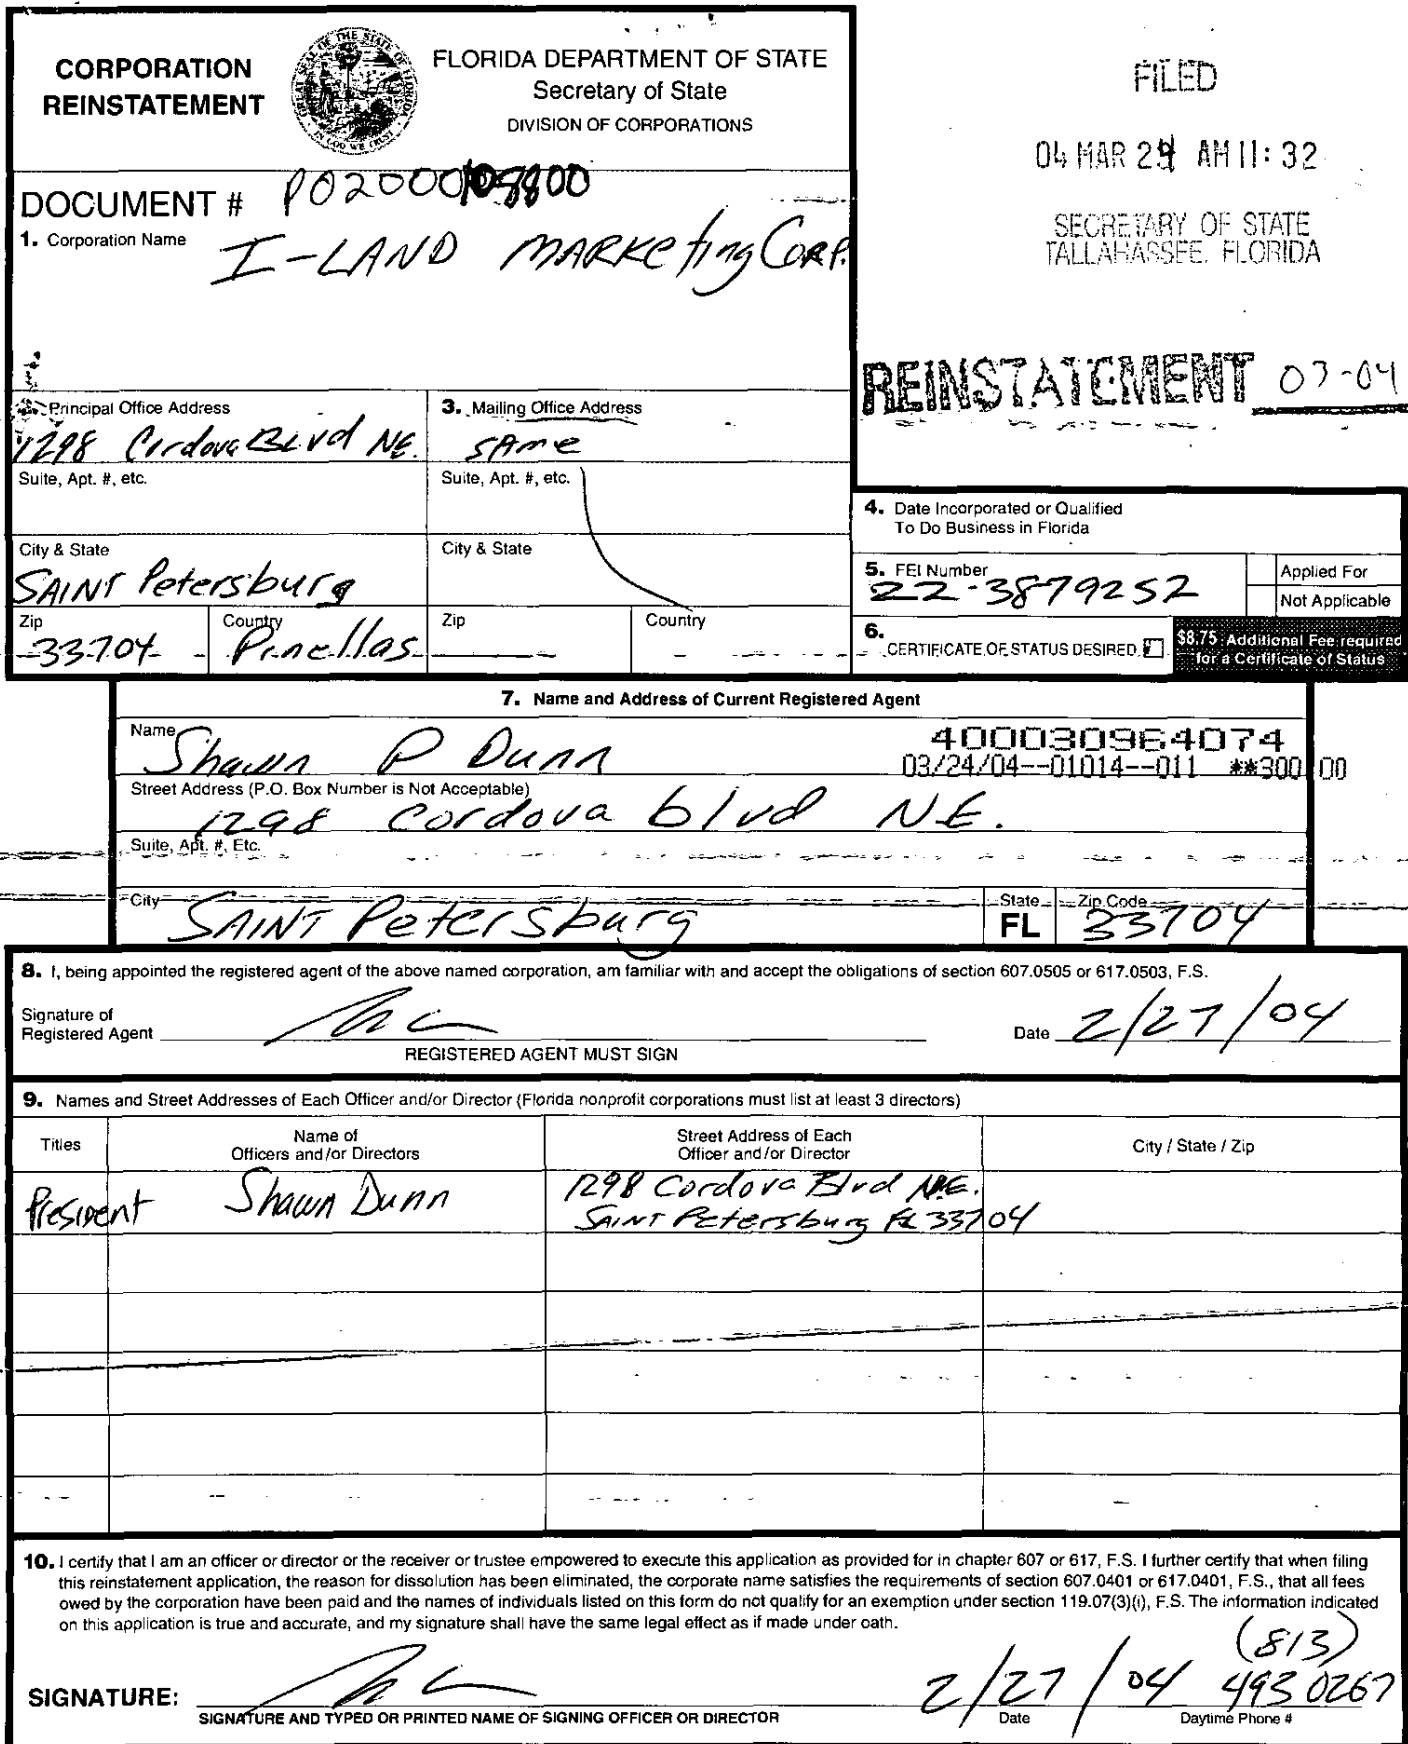 CORPORATION
REINSTATEMENT
FLORIDA DEPARTMENT OF STATE
Secretary of State
DIVISION OF CORPORATIONS
FILED
04 MAR 24 AM 11:32
SECRETARY OF STATE
TALLAHASSEE, FLORIDA
DOCUMENT # P02000108800
1. Corporation Name
I-LAND MARKeting CORP.
REINSTATEMENT 03-04
Principal Office Address
1298 Cordova BLvd NE.
3. Mailing Office Address
SAme
Suite, Apt. #, etc.
Suite, Apt. #, etc.
City & State
SAINT Petersburg
City & State
Zip
33704
Country
Pinellas
Zip
Country
4. Date Incorporated or Qualified
To Do Business in Florida
5. FEI Number
22-3879252
Applied For
Not Applicable
6. CERTIFICATE OF STATUS DESIRED
$8.75 Additional Fee required
for a Certificate of Status
7. Name and Address of Current Registered Agent
Name
Shawn P Dunn
400030964074
03/24/04--01014--011 **300.00
Street Address (P.O. Box Number is Not Acceptable)
1298 Cordova blvd N.E.
Suite, Apt. #, Etc.
City
SAINT Petersburg
State
FL
Zip Code
33704
8. I, being appointed the registered agent of the above named corporation, am familiar with and accept the obligations of section 607.0505 or 617.0503, F.S.
Signature of
Registered Agent
Date 2/27/04
REGISTERED AGENT MUST SIGN
9. Names and Street Addresses of Each Officer and/or Director (Florida nonprofit corporations must list at least 3 directors)
Titles
Name of
Officers and/or Directors
Street Address of Each
Officer and/or Director
City / State / Zip
President Shawn Dunn
1298 Cordova Blvd N.E.
SAINT Petersburg FL 33704
10. I certify that I am an officer or director or the receiver or trustee empowered to execute this application as provided for in chapter 607 or 617, F.S. I further certify that when filing
this reinstatement application, the reason for dissolution has been eliminated, the corporate name satisfies the requirements of section 607.0401 or 617.0401, F.S., that all fees
owed by the corporation have been paid and the names of individuals listed on this form do not qualify for an exemption under section 119.07(3)(i), F.S. The information indicated
on this application is true and accurate, and my signature shall have the same legal effect as if made under oath.
(813)
SIGNATURE: 2/27/04 493 0267
SIGNATURE AND TYPED OR PRINTED NAME OF SIGNING OFFICER OR DIRECTOR
Date
Daytime Phone #